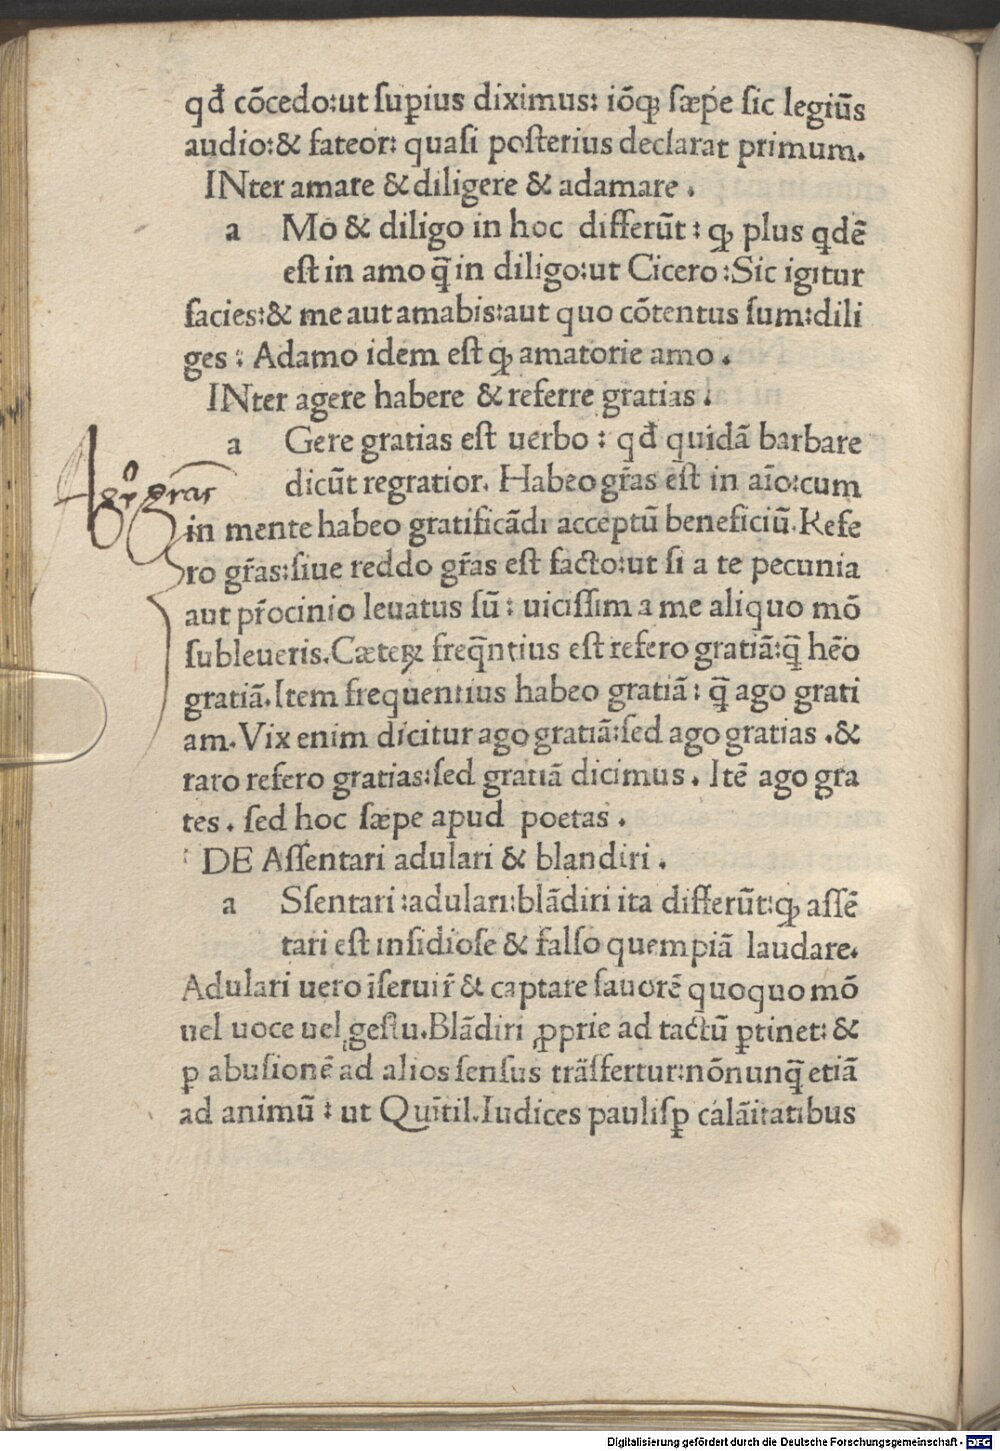 qđ cõcedo:ut suꝑius diximus: iõqꝫ sæpe sic legiũs
audio:& fateor: quasi posterius declarat primum.
INter amare & diligere & adamare .
a Mo & diligo in hoc differũt : ꝙ plus qdẽ
est in amo q̃ in diligo:ut Cicero :Sic igitur
facies:& me aut amabis:aut quo cõtentus sum:dili
ges : Adamo idem est ꝙ amatorie amo .
INter agere habere & referre gratias .
a Gere gratias est uerbo : qđ quidã barbare
dicũt regratior. Habeo gr̃as est in aĩo:cum
Agẽ gras
in mente habeo gratificãdi acceptũ beneficiũ.Refe
ro gr̃as:siue reddo gr̃as est facto:ut si a te pecunia
aut pr̃ocinio leuatus sũ : uicissim a me aliquo mõ
subleueris.Cæteꝝ freq̃ntius est refero gratiã:q̃ hẽo
gratiã.Item frequentius habeo gratiã : q̃ ago grati
am.Vix enim dicitur ago gratiã:sed ago gratias .&
raro refero gratias:sed gratiã dicimus . Itẽ ago gra
tes . sed hoc sæpe apud poetas .
DE Assentari adulari & blandiri .
a Ssentari :adulari:blãdiri ita differũt:ꝙ assẽ
tari est insidiose & falso quempiã laudare.
Adulari uero ĩseruir̃ & captare fauorẽ quoquo mõ
uel uoce uel gestu.Blãdiri ꝓprie ad tactũ ꝑtinet: &
ꝑ abusionẽ ad alios sensus trãsfertur:nõnunq̃ etiã
ad animũ : ut Quĩtil.Iudices paulisꝑ calãitatibus
Digitalisierung gefördert durch die Deutsche Forschungsgemeinschaft - DFG